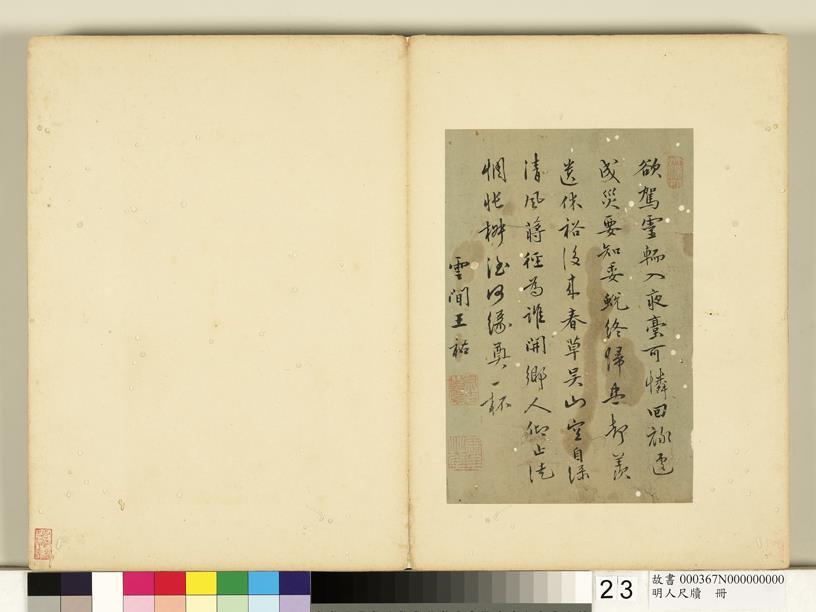 欲駕靈輀入夜臺可憐回祿遽
成災要知委蛻終歸盡却羨
遺休裕後來春草吳山空自綠
清風蔣徑為誰開鄉人仰止徒
惆悵椒酒何緣奠一杯
雲間王祐
23
故書 000367N000000000
明人尺牘 冊